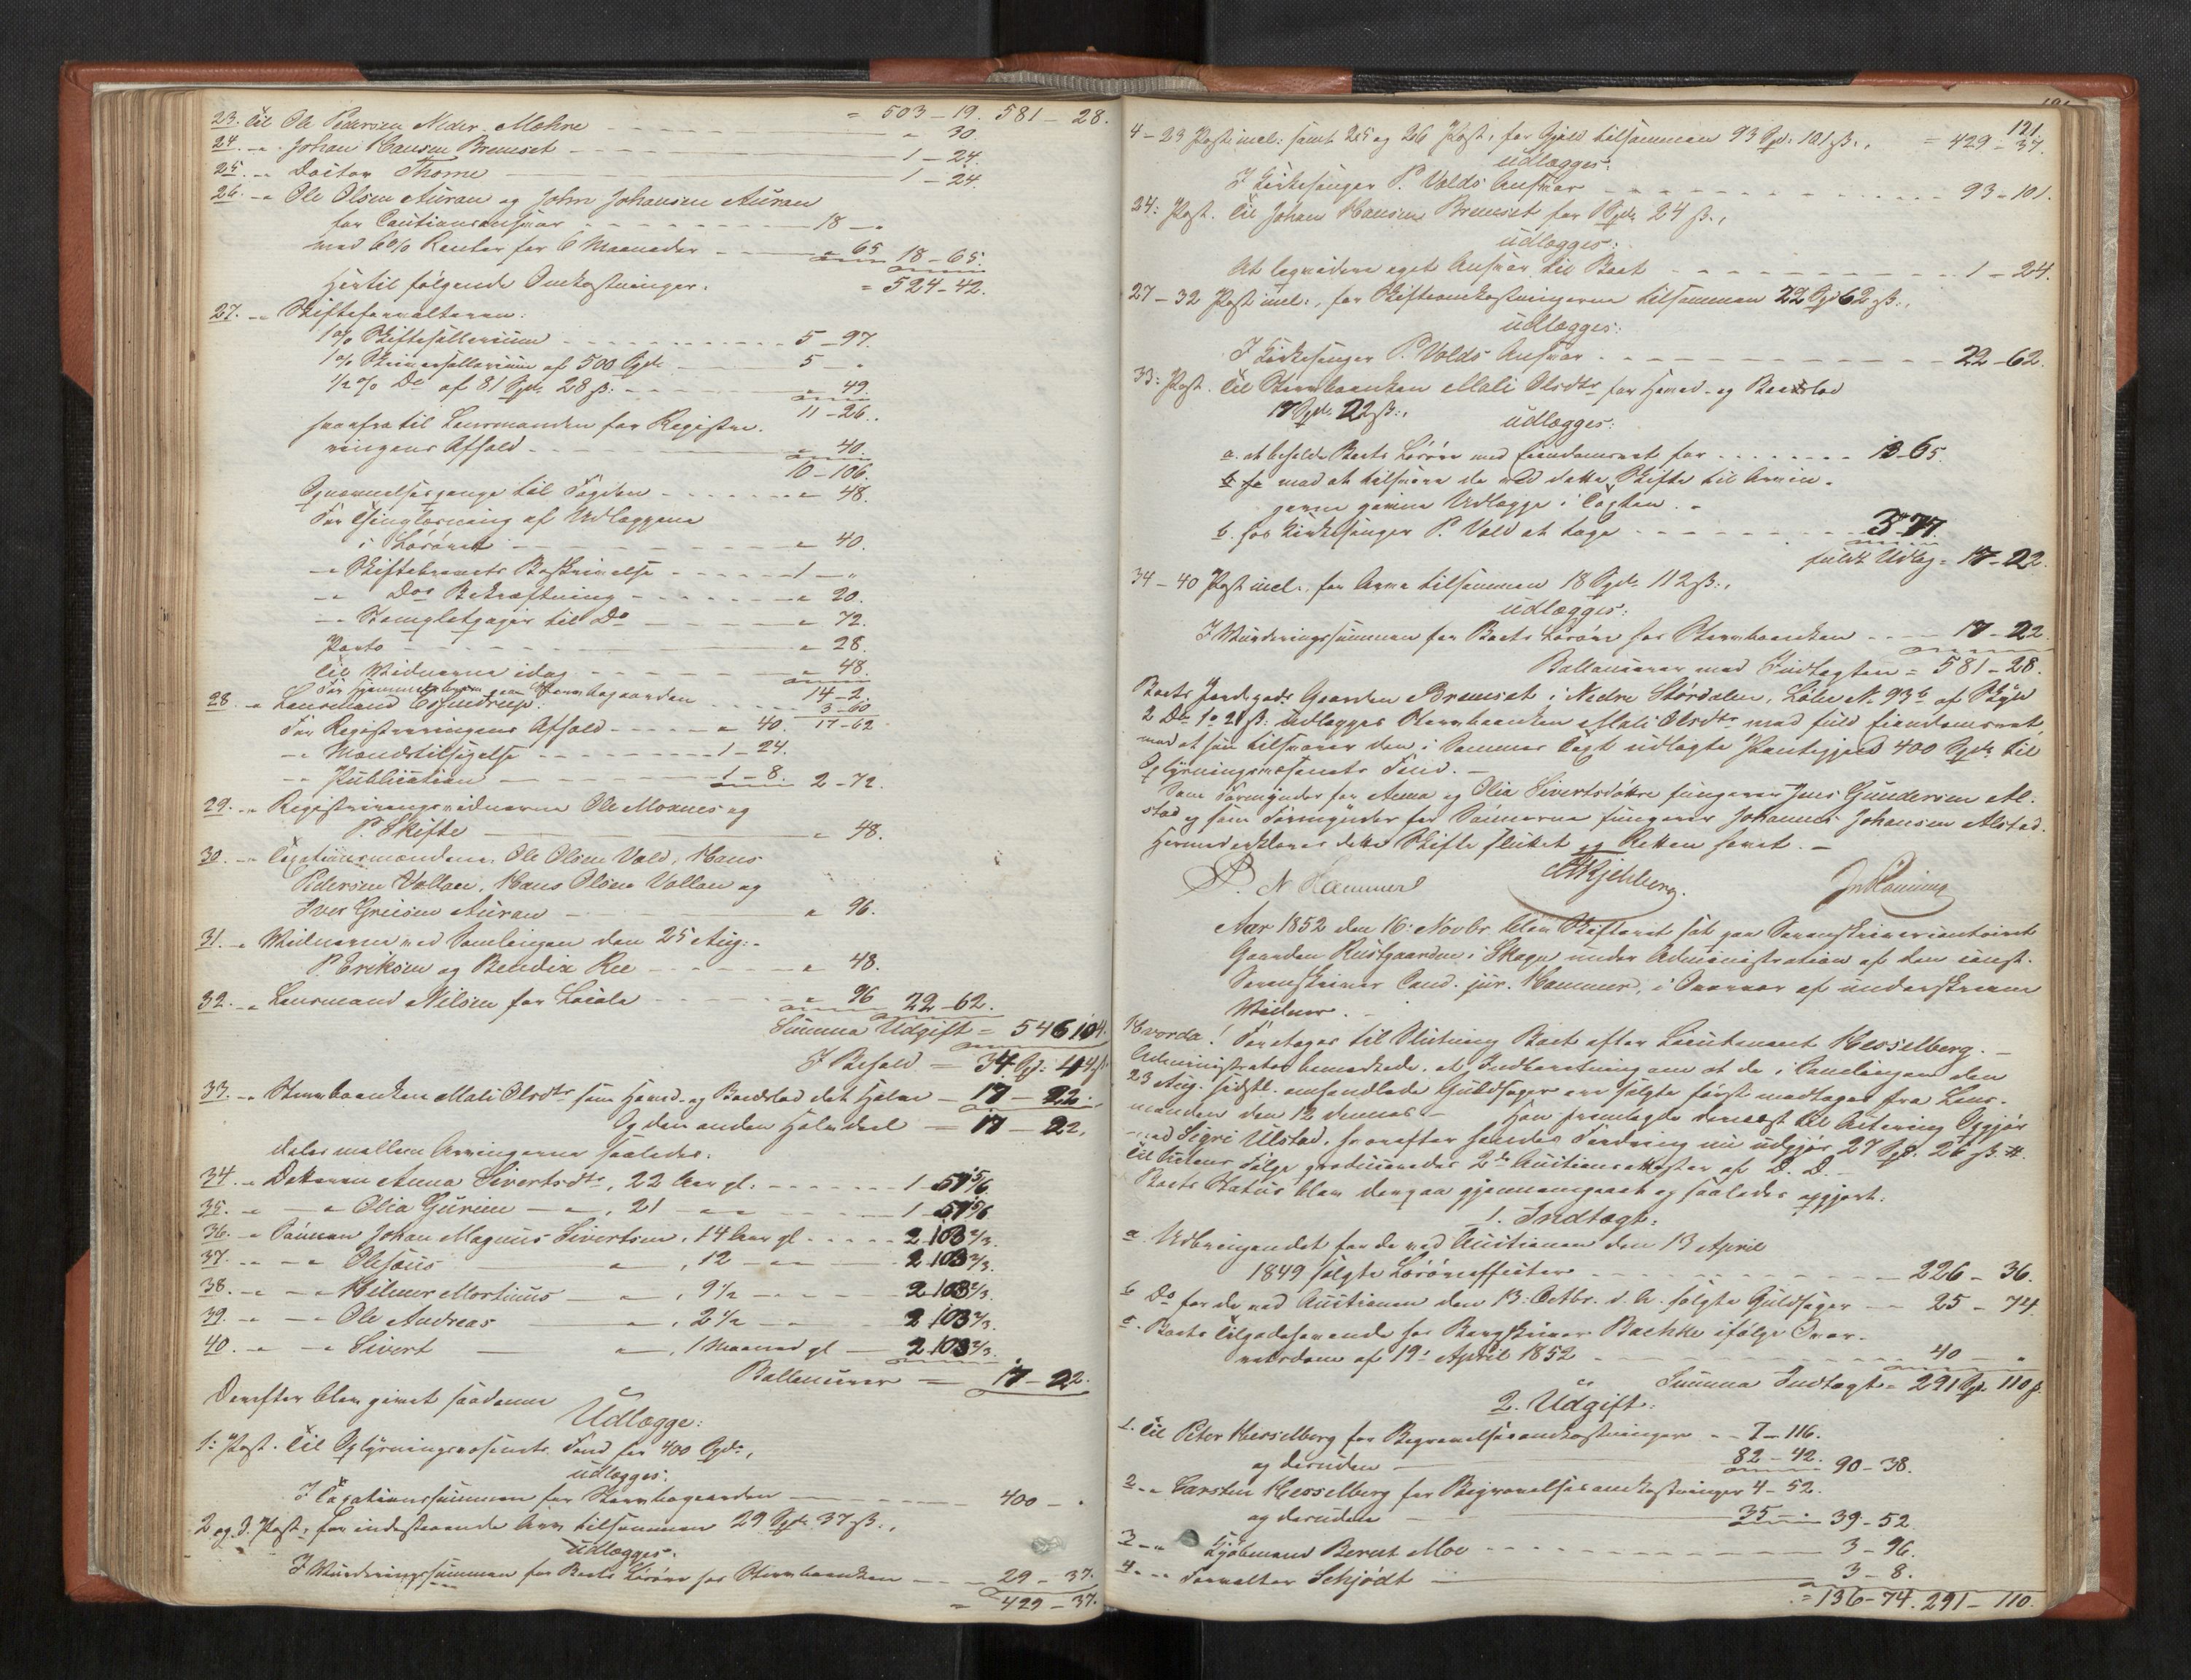 = 503 – 19. 581 – 28.
23. Til Ole Pedersen Neder-Mæhre – " 30.
24. –"– Johan Hansen Bremset – 1 – 24.
25. –"– Doctor Thome – 1 – 24.
26. –"– Ole Olsen Auran og John Johansen Auran
for Cautionsansvar – 18 – "
med 6% Renter for 6 Maaneder – " 65 18 – 65.
Hertil følgende Omkostninger. = 524 – 42.
27. –"– Skifteforvalteren:
1% Skiftesallarium – 5 – 97.
1% Skriversallarium af 500 Spd – 5 – "
1/2% Do af 81 Spd 28 ß. – " 49.
11 – 26.
hvorfra til Lensmanden for Registre-
ringens Afhold – " 40.
10 – 106.
Opnævnelsespenge til Fogden – " 48.
For Thinglæsning af Udlæggene
i Løsøret – " 40.
–"– Skiftebrevets Beskrivelse – 1 – "
–"– Dos Bekræftning – " 20.
–"– Stempletpapir til Do – " 72.
Porto – " 28.
Til Vidnerne idag – " 48.
14 – 2.
For Hjemmelbrev paa Stervbogaarden 3 – 60
28 –"– Lensmand 17 – 62
For Registreringens Afhold – " 40.
–"– Mændstilsigelse – 1 – 24.
–"– Publication – 1 – 8. 2 – 72.
29. –"– Registreringsvidnerne Ole Moxnes og
P. Skifte – " 48.
30. –"– Taxationsmændene Ole Olsen Vold, Hans
Pedersen Vollan, Hans Olsen Vollan og
Iver Greisen Auran – " 96.
31. –"– Vidnerne ved Samlingen den 25 Aug: –
P. Eriksen og Bendix Ree – " 48.
32. –"– Lensmand Nilsen for Locale – " 96 22 – 62.
Summa Udgift = 546 104.
I Behold = 34 Sp: 44 ß
33. –"– Stervboenken Mali Olsdtr som Hoved- og Boeslod det Halve – 17 – 22.
Og den anden Halvdeel = 17 – 22.
deles mellem Arvingerne saaledes:
34. –"– Datteren Anna Sivertsdtr, 22 Aar gl. – 1 – 51 5/6
35. –"– –"– Olia Gurine –"–, 21 –"– – 1 51 5/6
36. –"– Sønnen Johan Magnus Sivertsen, 14 Aar gl – 2 103 2/3.
37. –"– –"– Olesius –"–, 12 –"– 2 103 2/3.
38. –"– –"– Hilmer Martinus –"–, 9 1/2 – 2 103 2/3.
39. –"– –"– Ole Andreas –"–, 2 1/2 – 2 103 2/3.
40. –"– –"– Sivert –"–, 1 Maaned gl – 2 103 2/3.
Ballancerer = 17 – 22.
Derefter blev gjort saadanne
Udlægge:
1: Post. Til Oplysningsvæsenets Fond for 400 Spd,
udlægges:
I Taxationssummen for Stervbogaarden – 400 – "
2 og 3. Post, for indestaaende Arv tilsammen 29 Spd 37 ß.,
udlægges:
I Vurderingssummen for Boets Løsøre hos Stervboenken – 29 – 37.
= 429 – 37.
121.
4 – 23 Post incl: samt 25 og 26 Post, for Gjæld tilsammen 93 Spd. 101 ß., = 429 – 37.
udlægges:
I Kirkesanger P. Volds Ansvar – 93 – 101.
24: Post. Til Johan Hansen Bremset for 1 Spd 24 ß.,
udlægges:
At liqvidere eget Ansvar til Boet – 1 – 24.
27 – 32 Post incl., for Skifteomkostningerne tilsammen 22 Spd 62 ß.,
udlægges:
I Kirkesanger P. Volds Ansvar – 22 – 62.
33: Post. Til Stervboenken Mali Olsdtr for Hoved- og Boeslod
17 Spd. 22 ß.,
udlægges:
a. at beholde Boets Løsøre med Eiendomsret for – 13 65.
mod at tilsvare de ved dette Skifte til Arvin-
gerne gjorte Udlægge i Togten. –
b. hos Kirkesanger P. Vold at tage – 3 77.
fuldt Udlæg = 17 – 22.
34 – 40 Post incl., for Arve tilsammen 18 Spd. 112 ß.,
udlægges:
I Vurderingssummen for Boets Løsøre hos Stervboenken – 17 – 22.
Ballancerer med Indtægten = 581 – 28.
Boets Jordegods Gaarden Bremset i Nedre Størdalen, Løbe No 93b af Skyld
2 Dr. 1 o 21 ß. udlægges Stervboenken Mali Olsdtr med fuld Eiendomsret,
mod at hun tilsvarer den i samme Togt udlagte Pantegjæld 400 Spd. til
Oplysningsvæsenets Fond. –
Som Formynder for Anna og Olia Sivertsdøttre fungerer Jens Gundersen Al-
stad og som Formynder for Sønnerne fungerer Johannes Johansen Alstad.
Hermed erklæres dette Skifte sluttet og Retten hævet. –
P. N. Hammer
Aar 1852 den 16: Novbr blev Skifteret sat paa Sorenskrivercontoiret
Gaarden Rustgaarden i Skogn under Administration af den const.
Sorenskriver Cand. jur. Hammer, i Overvær af underskrevne
Vidner. –
Hvorda! Foretages til Slutning Boet efter Lieutenant Hesselberg. –
Administrator bemærkede, at Indberetning om at de i Samlingen den
23 Aug. sidstl. omhandlede Guldsager ere solgte først modtages fra Lens-
manden den 12 dennes – Han fremlagde dernæst til Actering Opgjør
med Sigri Ulstad, hvorefter hendes Fordring nu udgjør 27 Spd. 26 ß. #.
Til Actens Følge produceredes 2de Auctionsattester af D. D. –
Boets Status blev derpaa gjennemgaaet og saaledes opgjort:
1. Indtægt:
a. Udbringendet for de ved Auctionen den 13 April
1849 solgte Løsøreeffecter – 226 – 36.
b Do for de ved Auctionen den 13: Octbr. d. A. solgte Guldsager – 25 – 74.
c. Boets Tilgodehavende hos Bergskriver Bachke ifølge Over-
retsdom af 19: April 1852 – 40 – "
Summa Indtægt = 291 Spd. 110 ß.
2. Udgift:
1. Til Peter Hesselberg for Begravelsesomkostninger – 7 – 116.
og desuden – 82 – 42. 90 – 38.
2. –"– Carsten Hesselberg for Begravelsesomkostninger 4 – 52.
og desuden – 35 – " 39 – 52
3. –"– Kjøbmand Bernt Moe – 3 – 96.
4. –"– Forvalter Schjødt – 3 – 8.
= 136 – 74. 291 – 110.